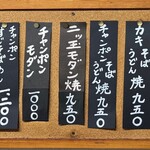 カキ そば
うどん 焼 九五〇
チャンポン そば
うどん 焼 九五〇
二ッ玉モダン焼 九五〇
チャンポン
モダン 一〇〇〇
一、二〇〇